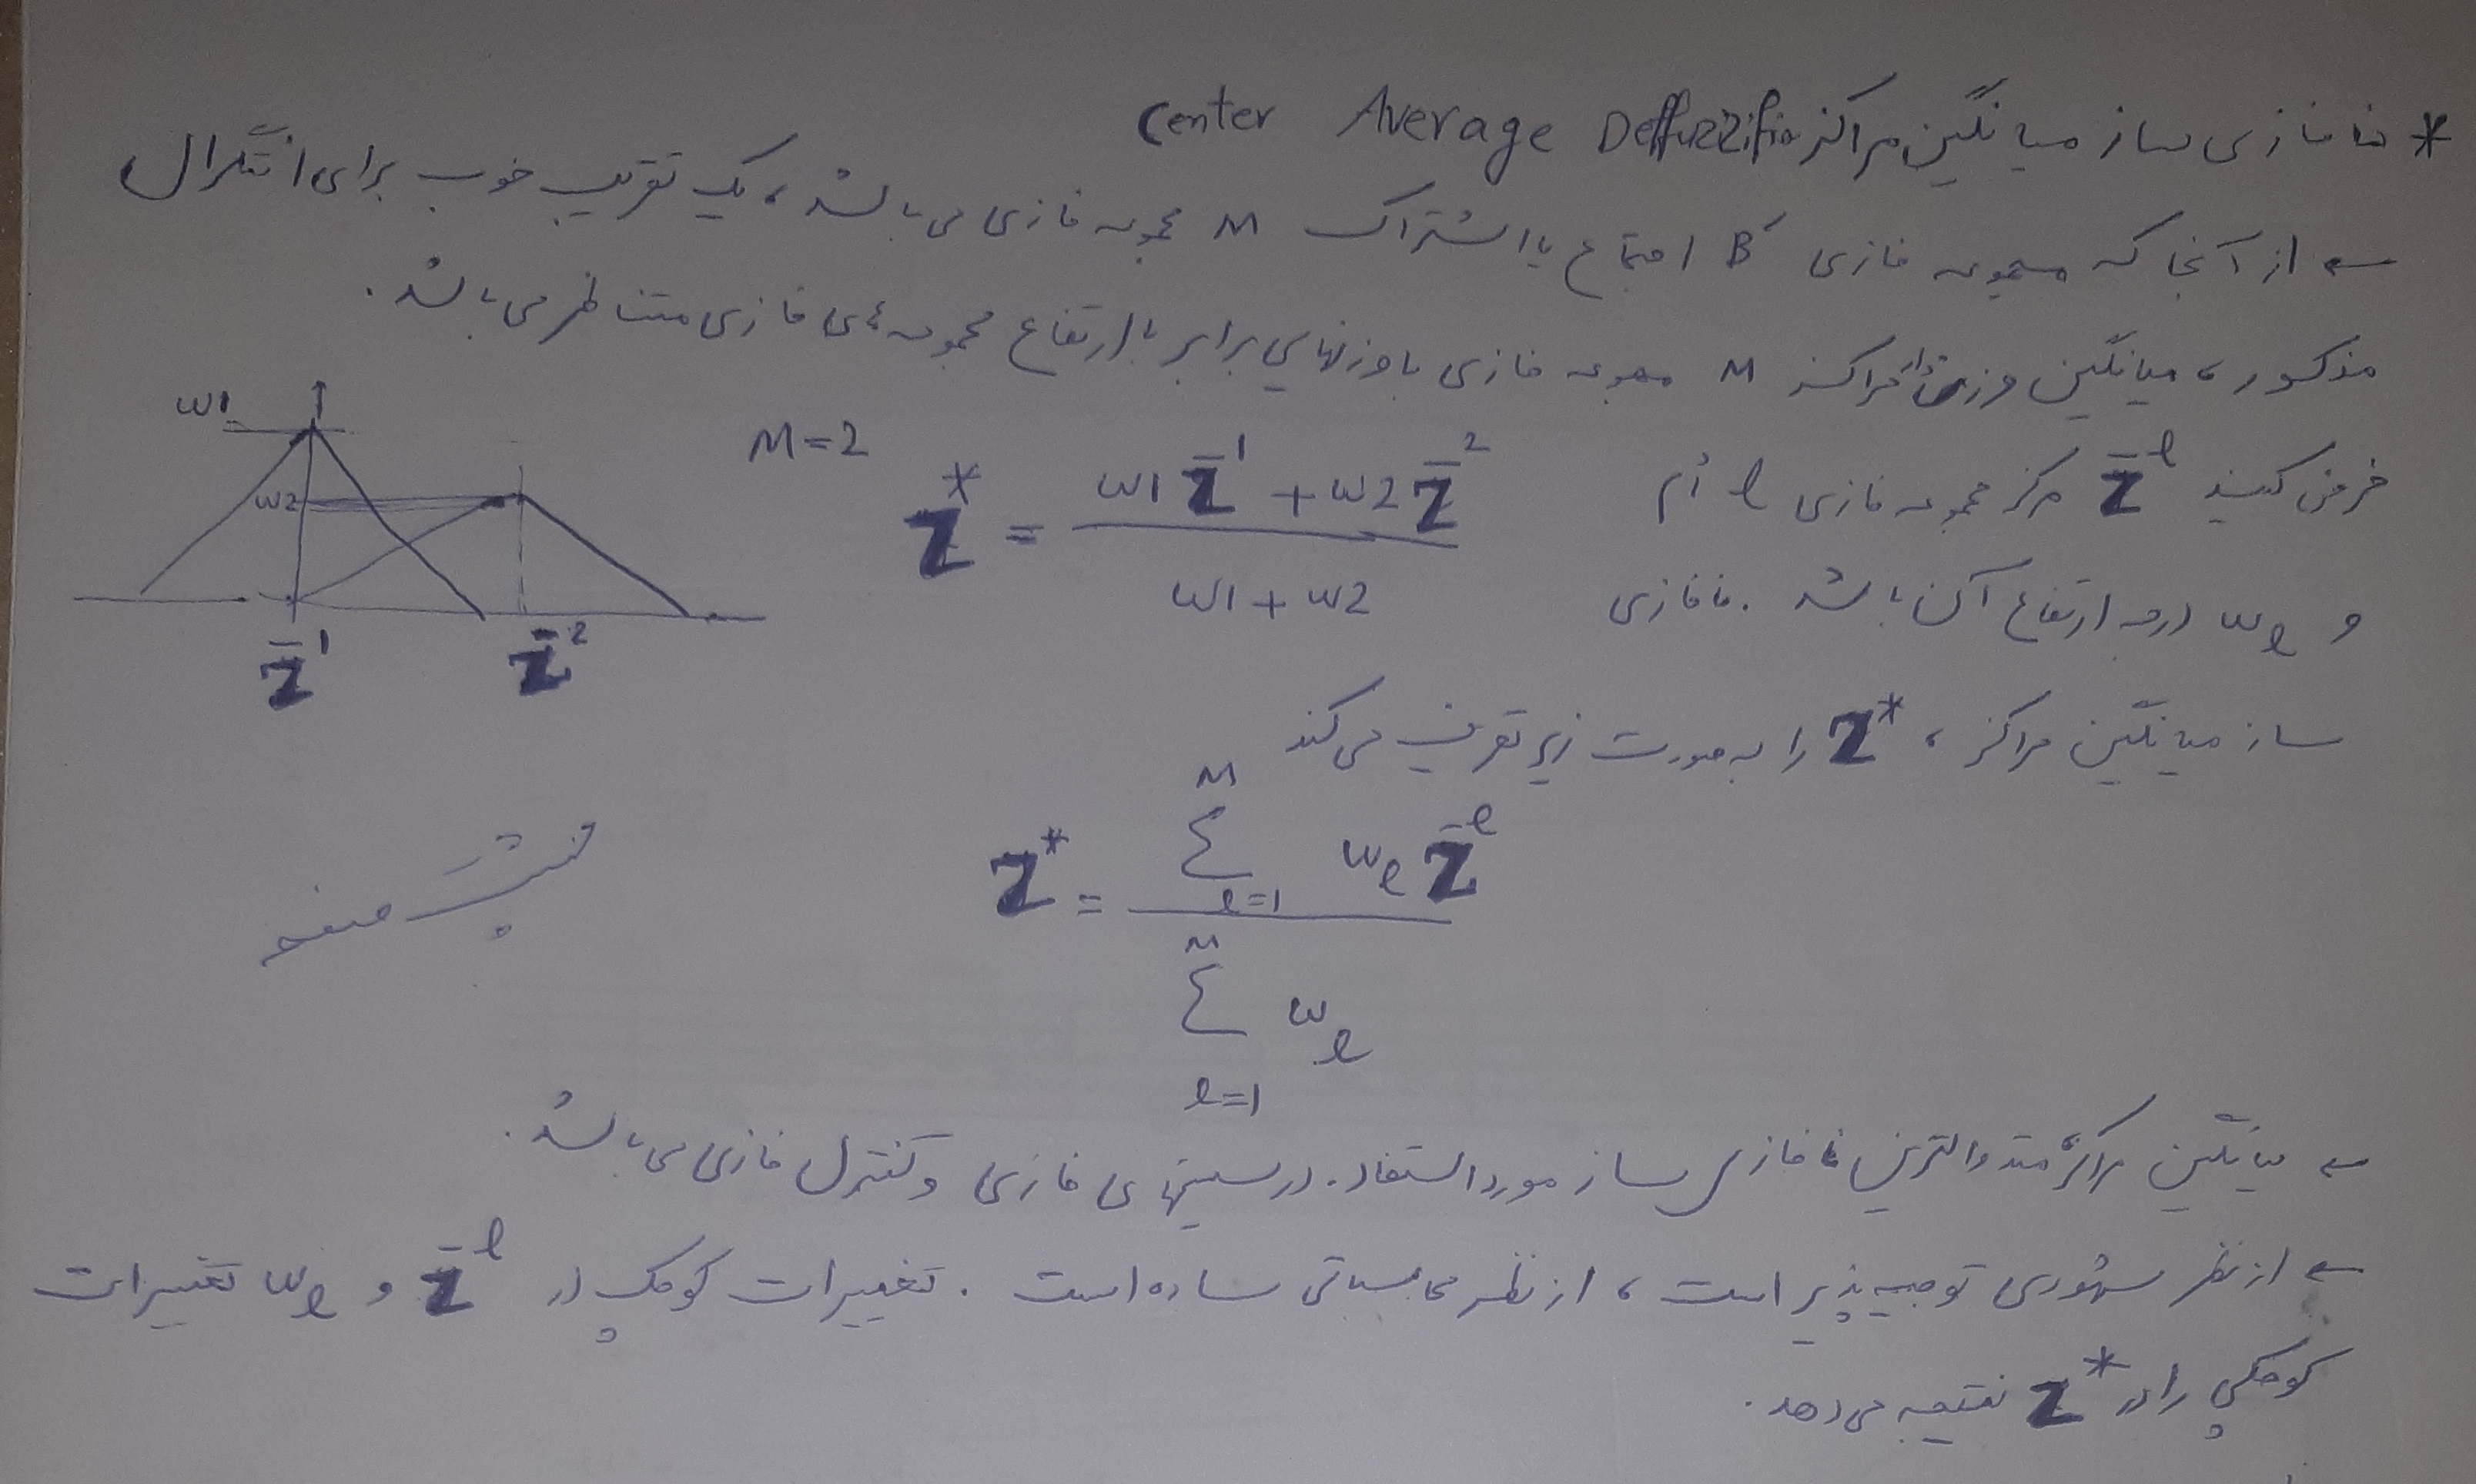 * نافازی ساز میانگین مراکز Center Average Deffuzzifie
← از آنجا که مجموعه فازی B' اجتماع یا اشتراک M مجموعه فازی می باشد، یک تقریب خوب برای انتگرال
مذکور، میانگین وزنی مراکز M مجموعه فازی با وزنهایی برابر با ارتفاع مجموعه های فازی متناظر می باشد.
فرض کنید z̄^l مرکز مجموعه فازی l اُم
و w_l درجه ارتفاع آن باشد. نافازی
ساز میانگین مراکز، z* را به صورت زیر تعریف می کند
M=2
z* = (w1 z̄^1 + w2 z̄^2) / (w1 + w2)
w1 1
w2
z̄^1 z̄^2
z* = (Σ_{l=1}^{M} w_l z̄^l) / (Σ_{l=1}^{M} w_l)
پشت صفحه
← میانگین مراکز متداولترین نافازی ساز مورد استفاده در سیستمهای فازی و کنترل فازی می باشد.
← از نظر شهودی توجیه پذیر است، از نظر محاسباتی ساده است. تغییرات کوچک در z̄^l و w_l تغییرات
کوچکی را در z* نتیجه می دهد.